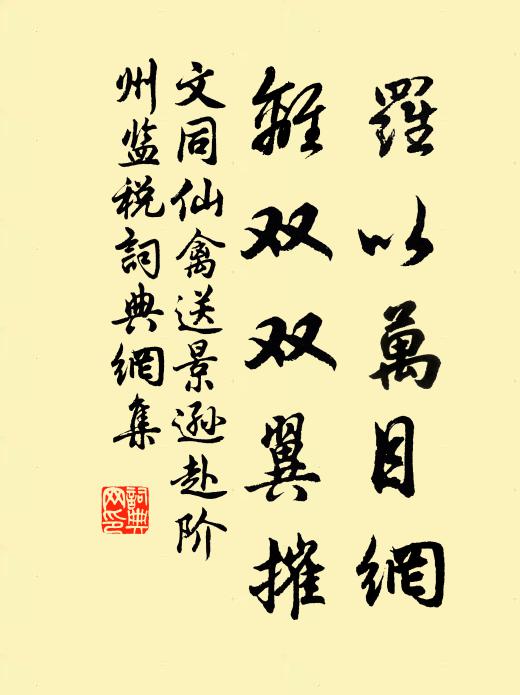 羅以萬目網
離双双翼摧
文同仙禽送景遜赴阶
州监税詞典網集
詞典网印